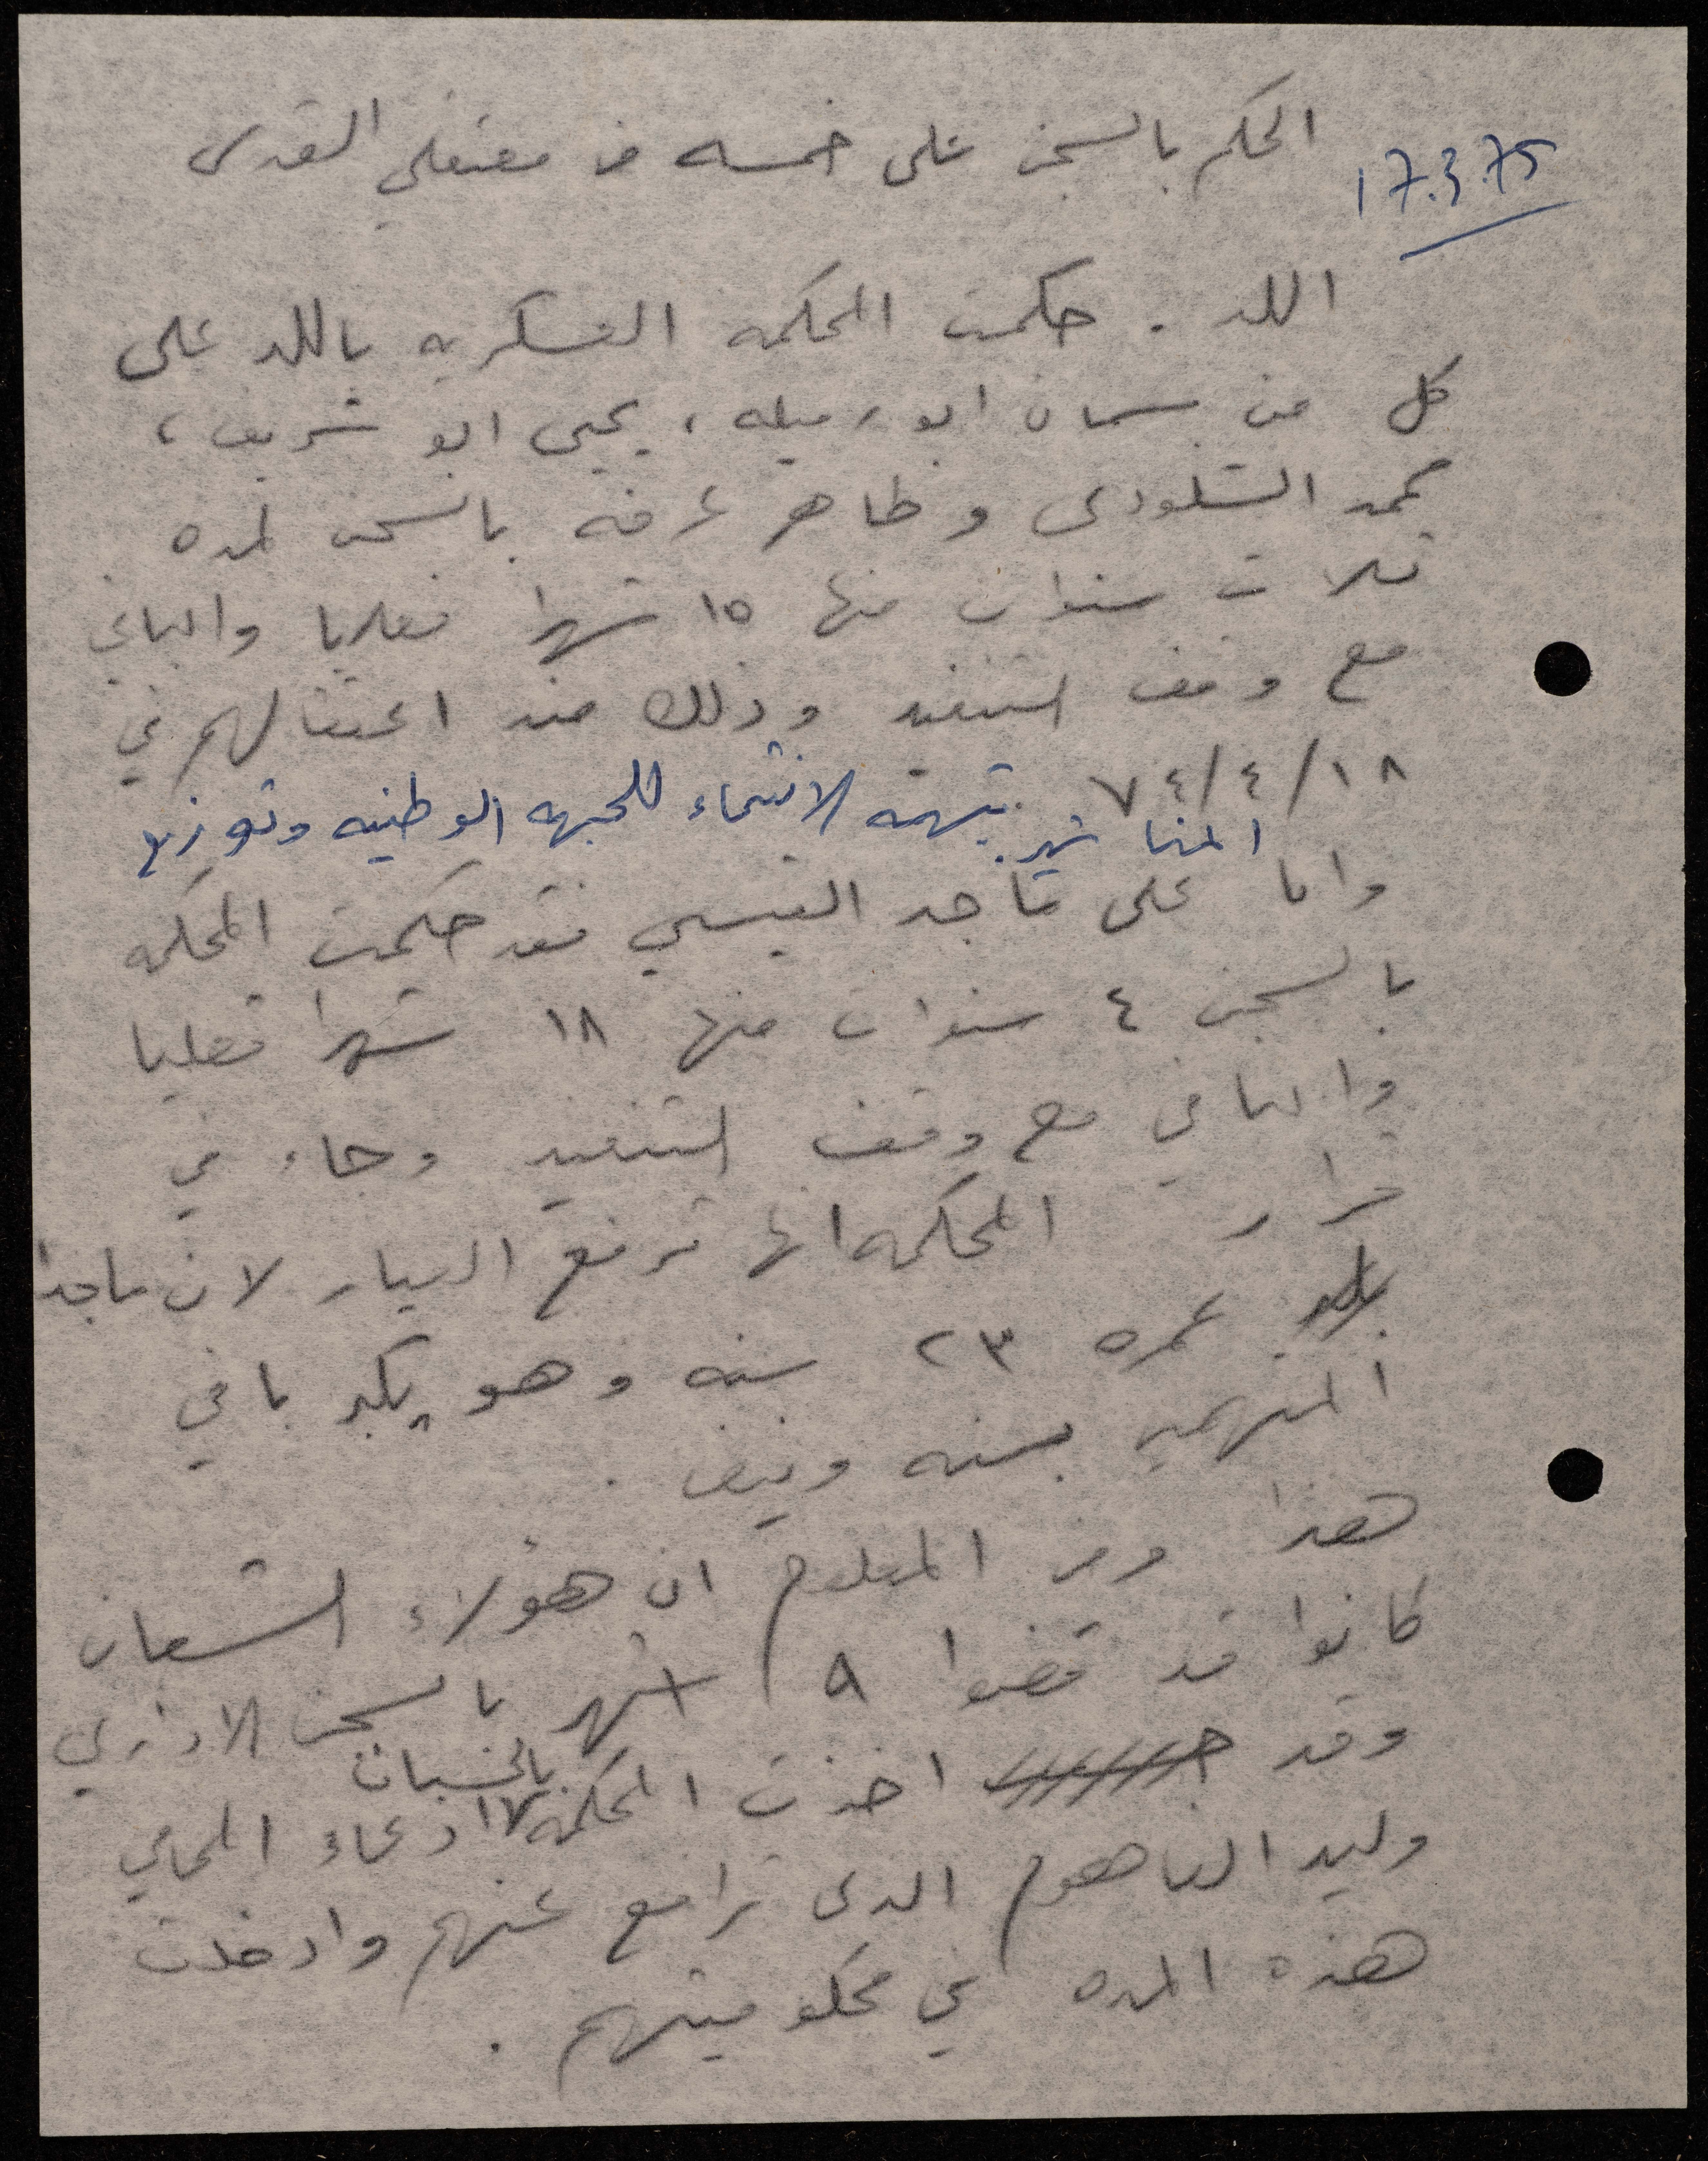 17.3.75
الحكم بالسجن على خمسه من معتقلي القدس
اللد . حكمت المحكمه العسكريه باللد على
كل من سمان ابو رميله ، يحيى ابو شريف ،
محمد السلودى و طاهر عرفه بالسجن لمده
ثلاث سنوات منها ١٥ شهرا فعليا والباقي
مع وقف التنفيذ وذلك منذ اعتقالهم في
٧٤/٤/١٨ بتهمه الانتماء للجبهه الوطنيه وتوزيع
المناشير.
واما على ماجد القيسي فقد حكمت المحكمه
بالسجن ٤ سنوات منها ١٨ شهرا فعليا
والباقي مع وقف التنفيذ وجاء في
قرار المحكمه انها ترفع العيار لان ماجدا
عمره ٢٣ سنه وهو يكبر باقي
المتهمين بسنه ونيف .
هذا ومن المعلوم ان هؤلاء الشبان
كانوا قد قضوا ٩ اشهر بالسجن الاداري
وقد اخذت المحكمه بالحسبان ادعاء المحامي
وليد الفاهوم الذى ترافع عنهم وادخلت
هذه المده في محكوميتهم .